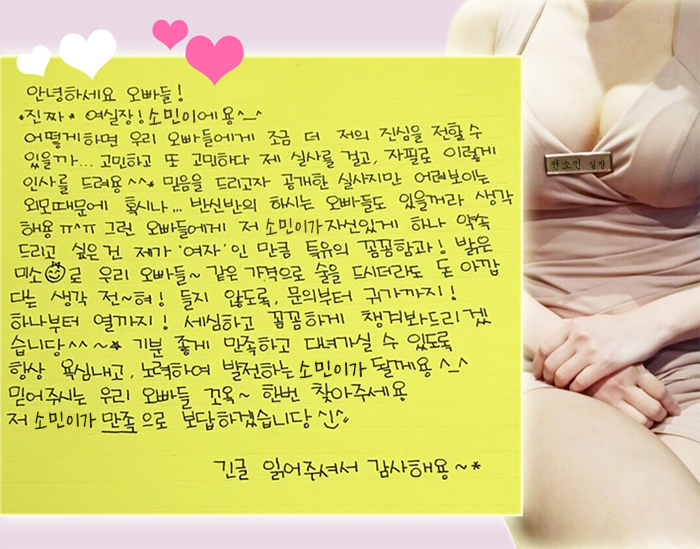 안녕하세요 오빠들!
*진짜* 여실장! 소민이에용^_^
어떻게하면 우리 오빠들에게 조금 더 저의 진심을 전할수
있을까... 고민하고 또 고민하다 제 실사를 걸고, 자필로 이렇게
인사를 드려용^^* 믿음을 드리고자 공개한 실사지만 어려보이는
외모때문에 혹시나... 반신반의 하시는 오빠들도 있을꺼라 생각
해용 ㅠ^ㅠ 그런 오빠들에게 저 소민이가 자신있게 하나 약속
드리고 싶은건 제가 '여자' 인 만큼 특유의 꼼꼼함과! 밝은
미소로 우리 오빠들~ 같은 가격으로 술을 드시더라도 돈 아깝
다는 생각 전~혀! 들지 않도록, 문의부터 귀가까지!
하나부터 열까지! 세심하고 꼼꼼하게 챙겨봐드리겠
습니당^^~* 기분 좋게 만족하고 대녀가실 수 있도록
항상 욕심내고, 노력하여 발전하는 소민이가 될게용^_^
믿어주시는 우리 오빠들 꼬옥~ 한번 찾아주세용
저 소민이가 만족으로 보답하겠습니당
긴글 읽어주셔서 감사해용~*
전소민 실장